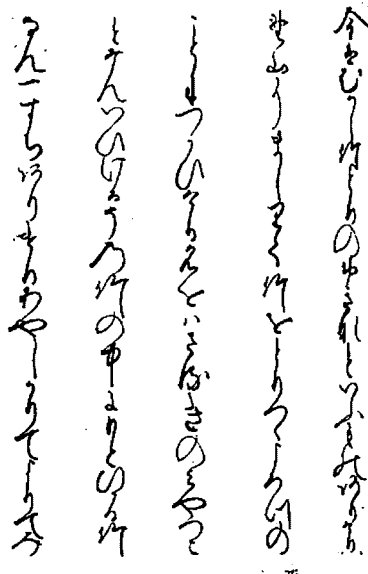 今はむかし竹とりのおきなといふもの有けり
野山にましりて竹をとりつゝよろつの
ことにつかひけり名をはさぬきのみやつこ
となんいひけるその竹の中にもとひかる竹
なん一すちありけりあやしかりてよりてみ